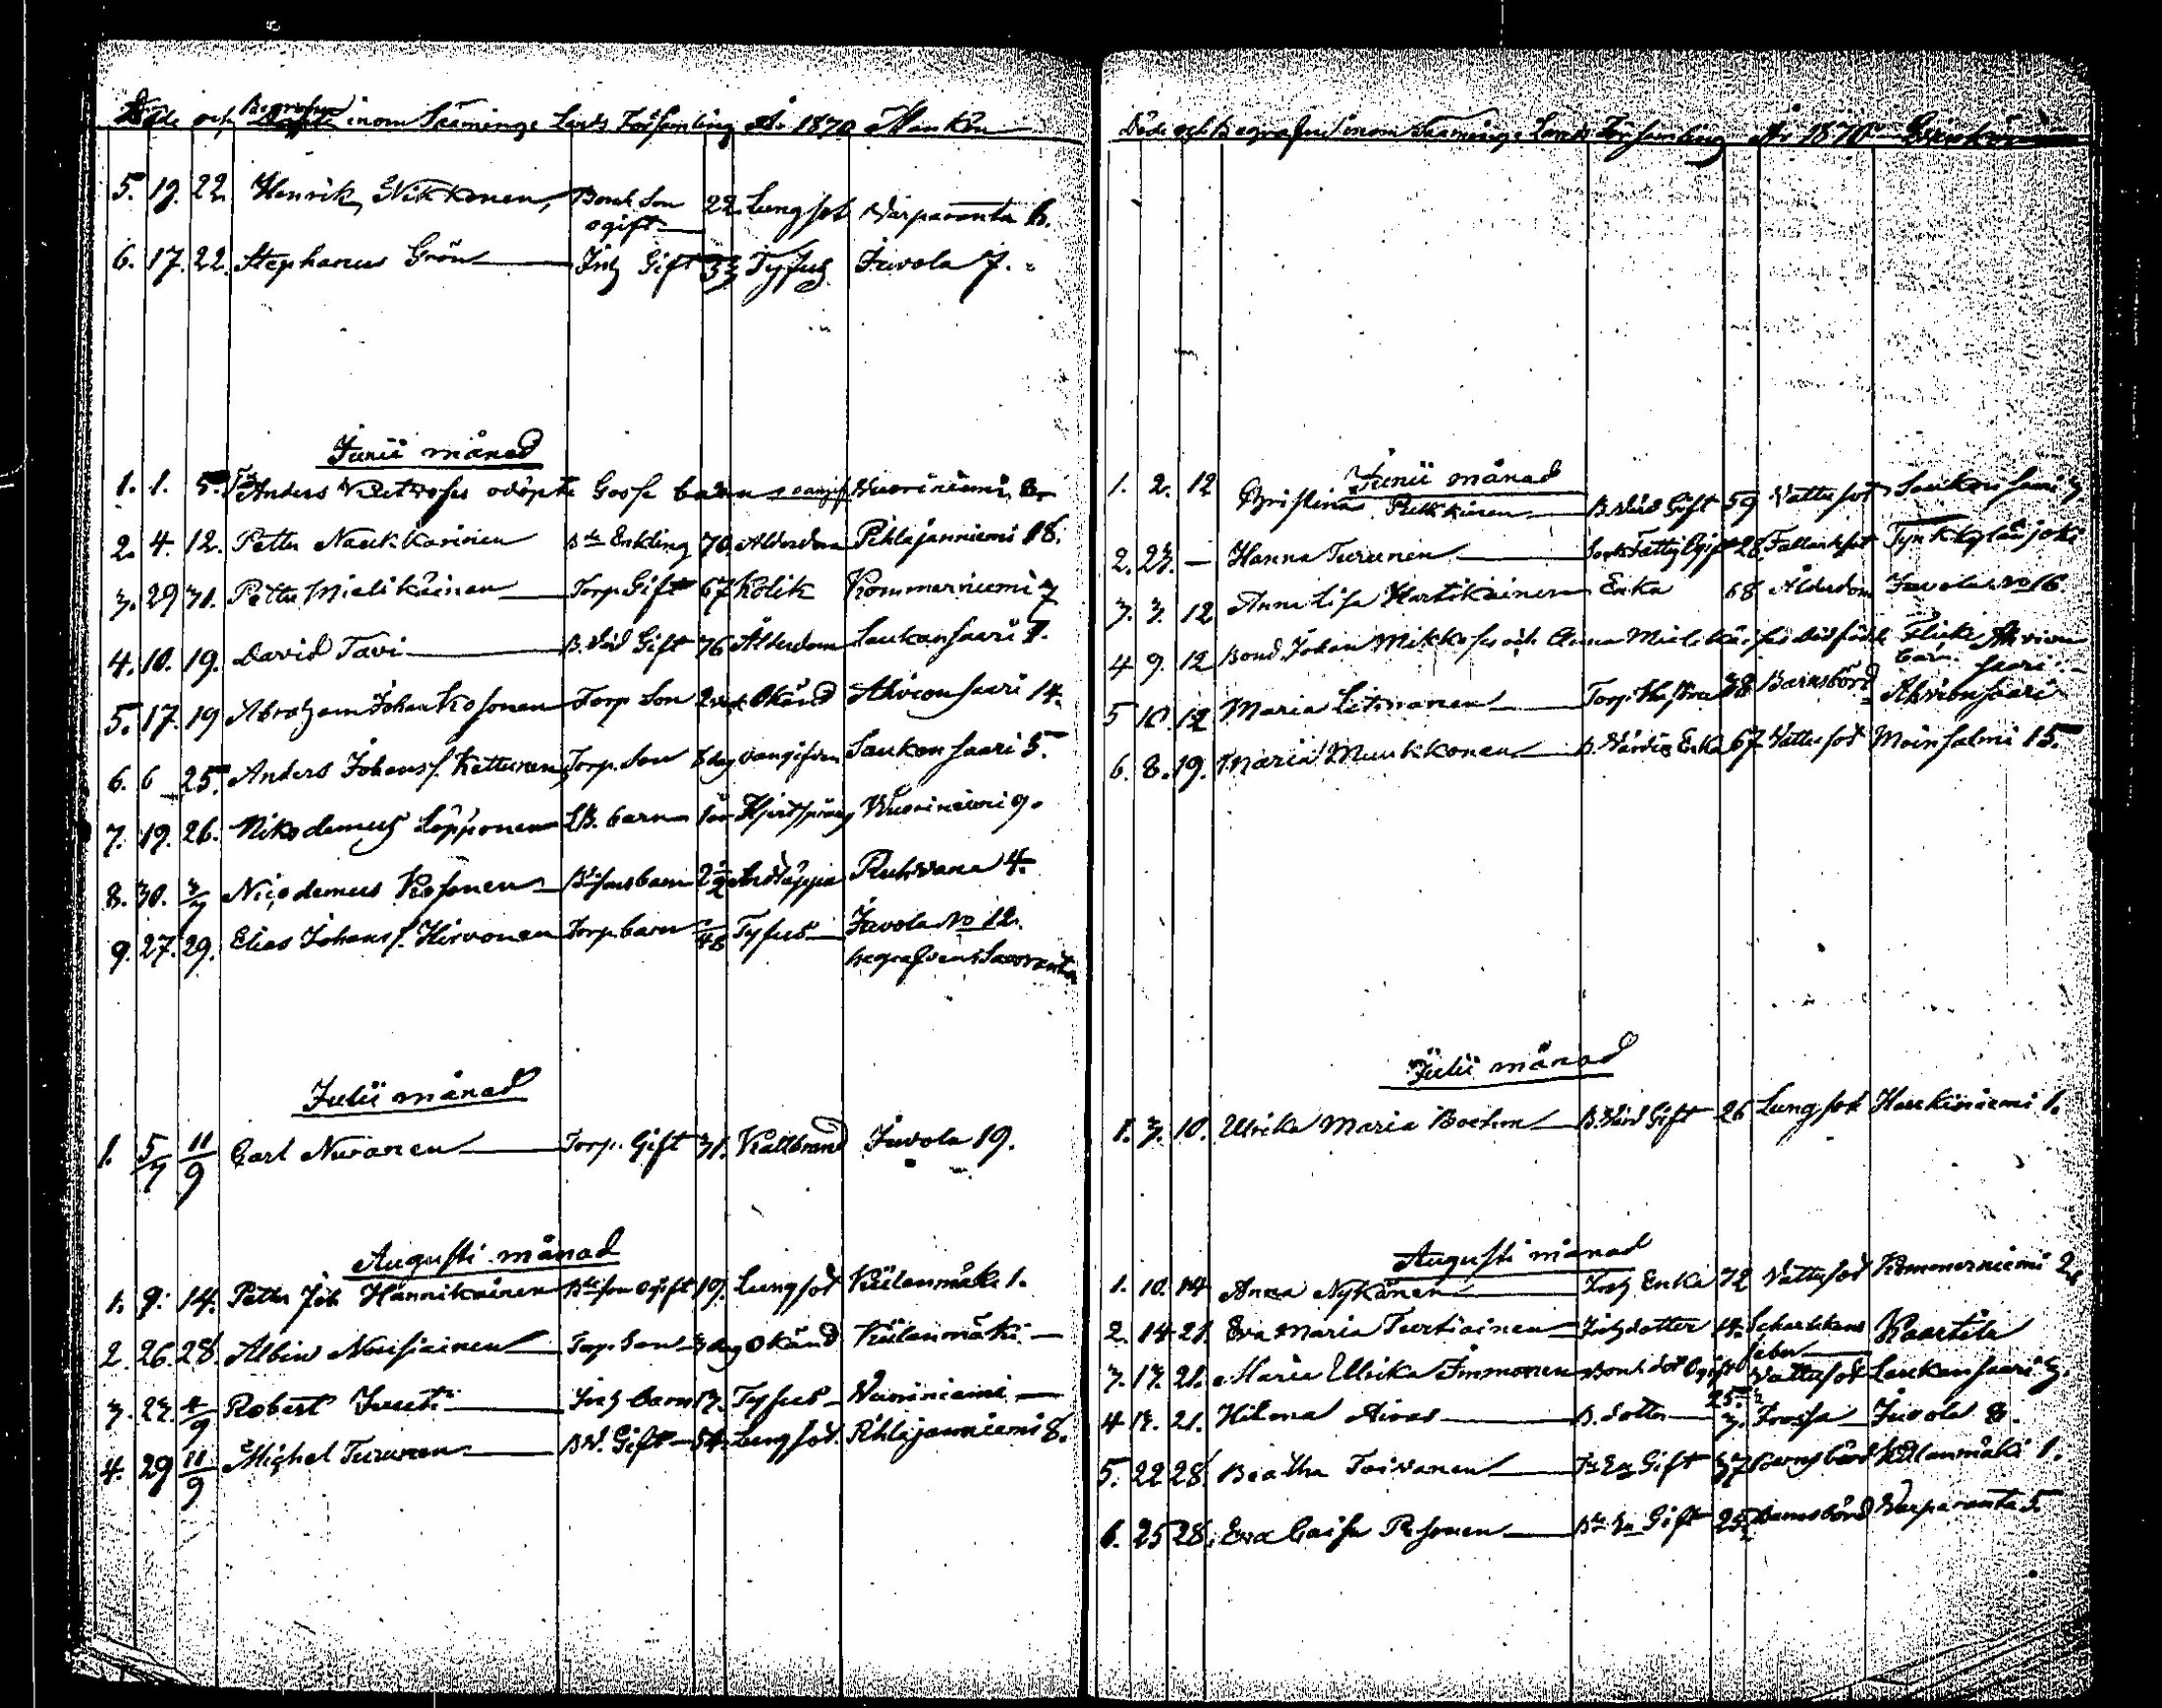 Döde och Begrafne inom Säminge Lands Församling År 1870 Mankön
5. 19. 22. Henrik Nikkonen, Bond Son 22. Lungsot Varparanta 6.
ogift
6. 17. 22. Stephanus Grön Inh Gift 33 Tyfus Juvola 7.
Junii månad
1. 1. 5. Anders odöpte Gosse barn Vuoriniemi 8.
2. 4. 12. Petter Naukkarinen Enkling 70 Ålderdom Pihlajaniemi 18.
3. 29 31. Petter Mielikäinen Torp. Gift 67 Kolik Kommerniemi 7
4. 10. 19. David Tavi B. Värd Gift 76 Ålderdom Laukansaari 7.
5. 17. 19 Abraham Johan Kosonen Torp Son Okänd Ahvionsaari 14.
6. 6 25. Anders Johanss. Ketturen Torp. Son dag oangifven Laukansaari 5.
7. 19. 26. Nikodemus Löpponen barn Vuoriniemi 9.
8. 30. 3/7 Nicodemus Kosonen barn Ruhvana 4.
9. 27. 29. Elias Johanss. Hirvonen Torp. barn Tyfus Juvola No 12.
begrafven i Savonranta
Julii månad
1. 5/7 11/9 Carl Nuranen Torp. Gift 31. Kallbrand Juvola 19.
Augusti månad
1. 9. 14. Petter Joh Hännikäinen son ogift 19. Lungsot Kiilanmäki 1.
2. 26. 28. Albin Nousiainen Torp. Son 3 dag Okänd Kiilanmäki
3. 23. 4/9 Robert Juuti Inh barn 13. Tyfus Vuoriniemi
4. 29 11/9 Michel Turunen B.V. Gift 54. Lungsot. Pihlajaniemi 8.
Döde och Begrafne inom Säminge Lands Församling År 1870 Qvinkön
Junii månad
1. 2. 12 Christina Pukkinen B. Värd Gift 59 Vattusot Laukansaari 3
2. 23. — Hanna Turunen Ogift 28 Fallandsot Tynkkylänjoki
3. 3. 12 Anna Lisa Hartikainen Enka 68 Ålderdom Juvola No 16.
4 9. 12 Bond. Johan Mikkoses och Anna dödfödde Flicke Ahvion
barn. saari
5 10. 12 Maria Litmanen Torp. Hustru 38 Barnsbörd Ahvionsaari
6. 8. 19. Maria Muukkonen B. Värds Enka 67 Vattusot Moinsalmi 15.
Julii månad
1. 3. 10. Ulrika Maria Boehm B. Värd Gift 26 Lungsot Haukiniemi 1.
Augusti månad
1. 10. 14 Anna Nykänen Inh Enka 72 Vattusot Kommerniemi 2
2. 14 21. Eva Maria Turtiainen Inh dotter 14. Scharlakans Kaartila
feber
3. 17. 21. Maria Ulrika Immonen Bond dot Ogift 25. Vattusot Laukansaari 3.
4 17. 21. Hilma Aivas B. dotter 3. Frossa Juvola 8.
5. 22 28. Beatha Toivanen Gift 37 Barnsbörd Kiilanmäki 1.
6. 25 28. Eva Caisa Pesonen Gift 25 Barnsbörd Varparanta 5.